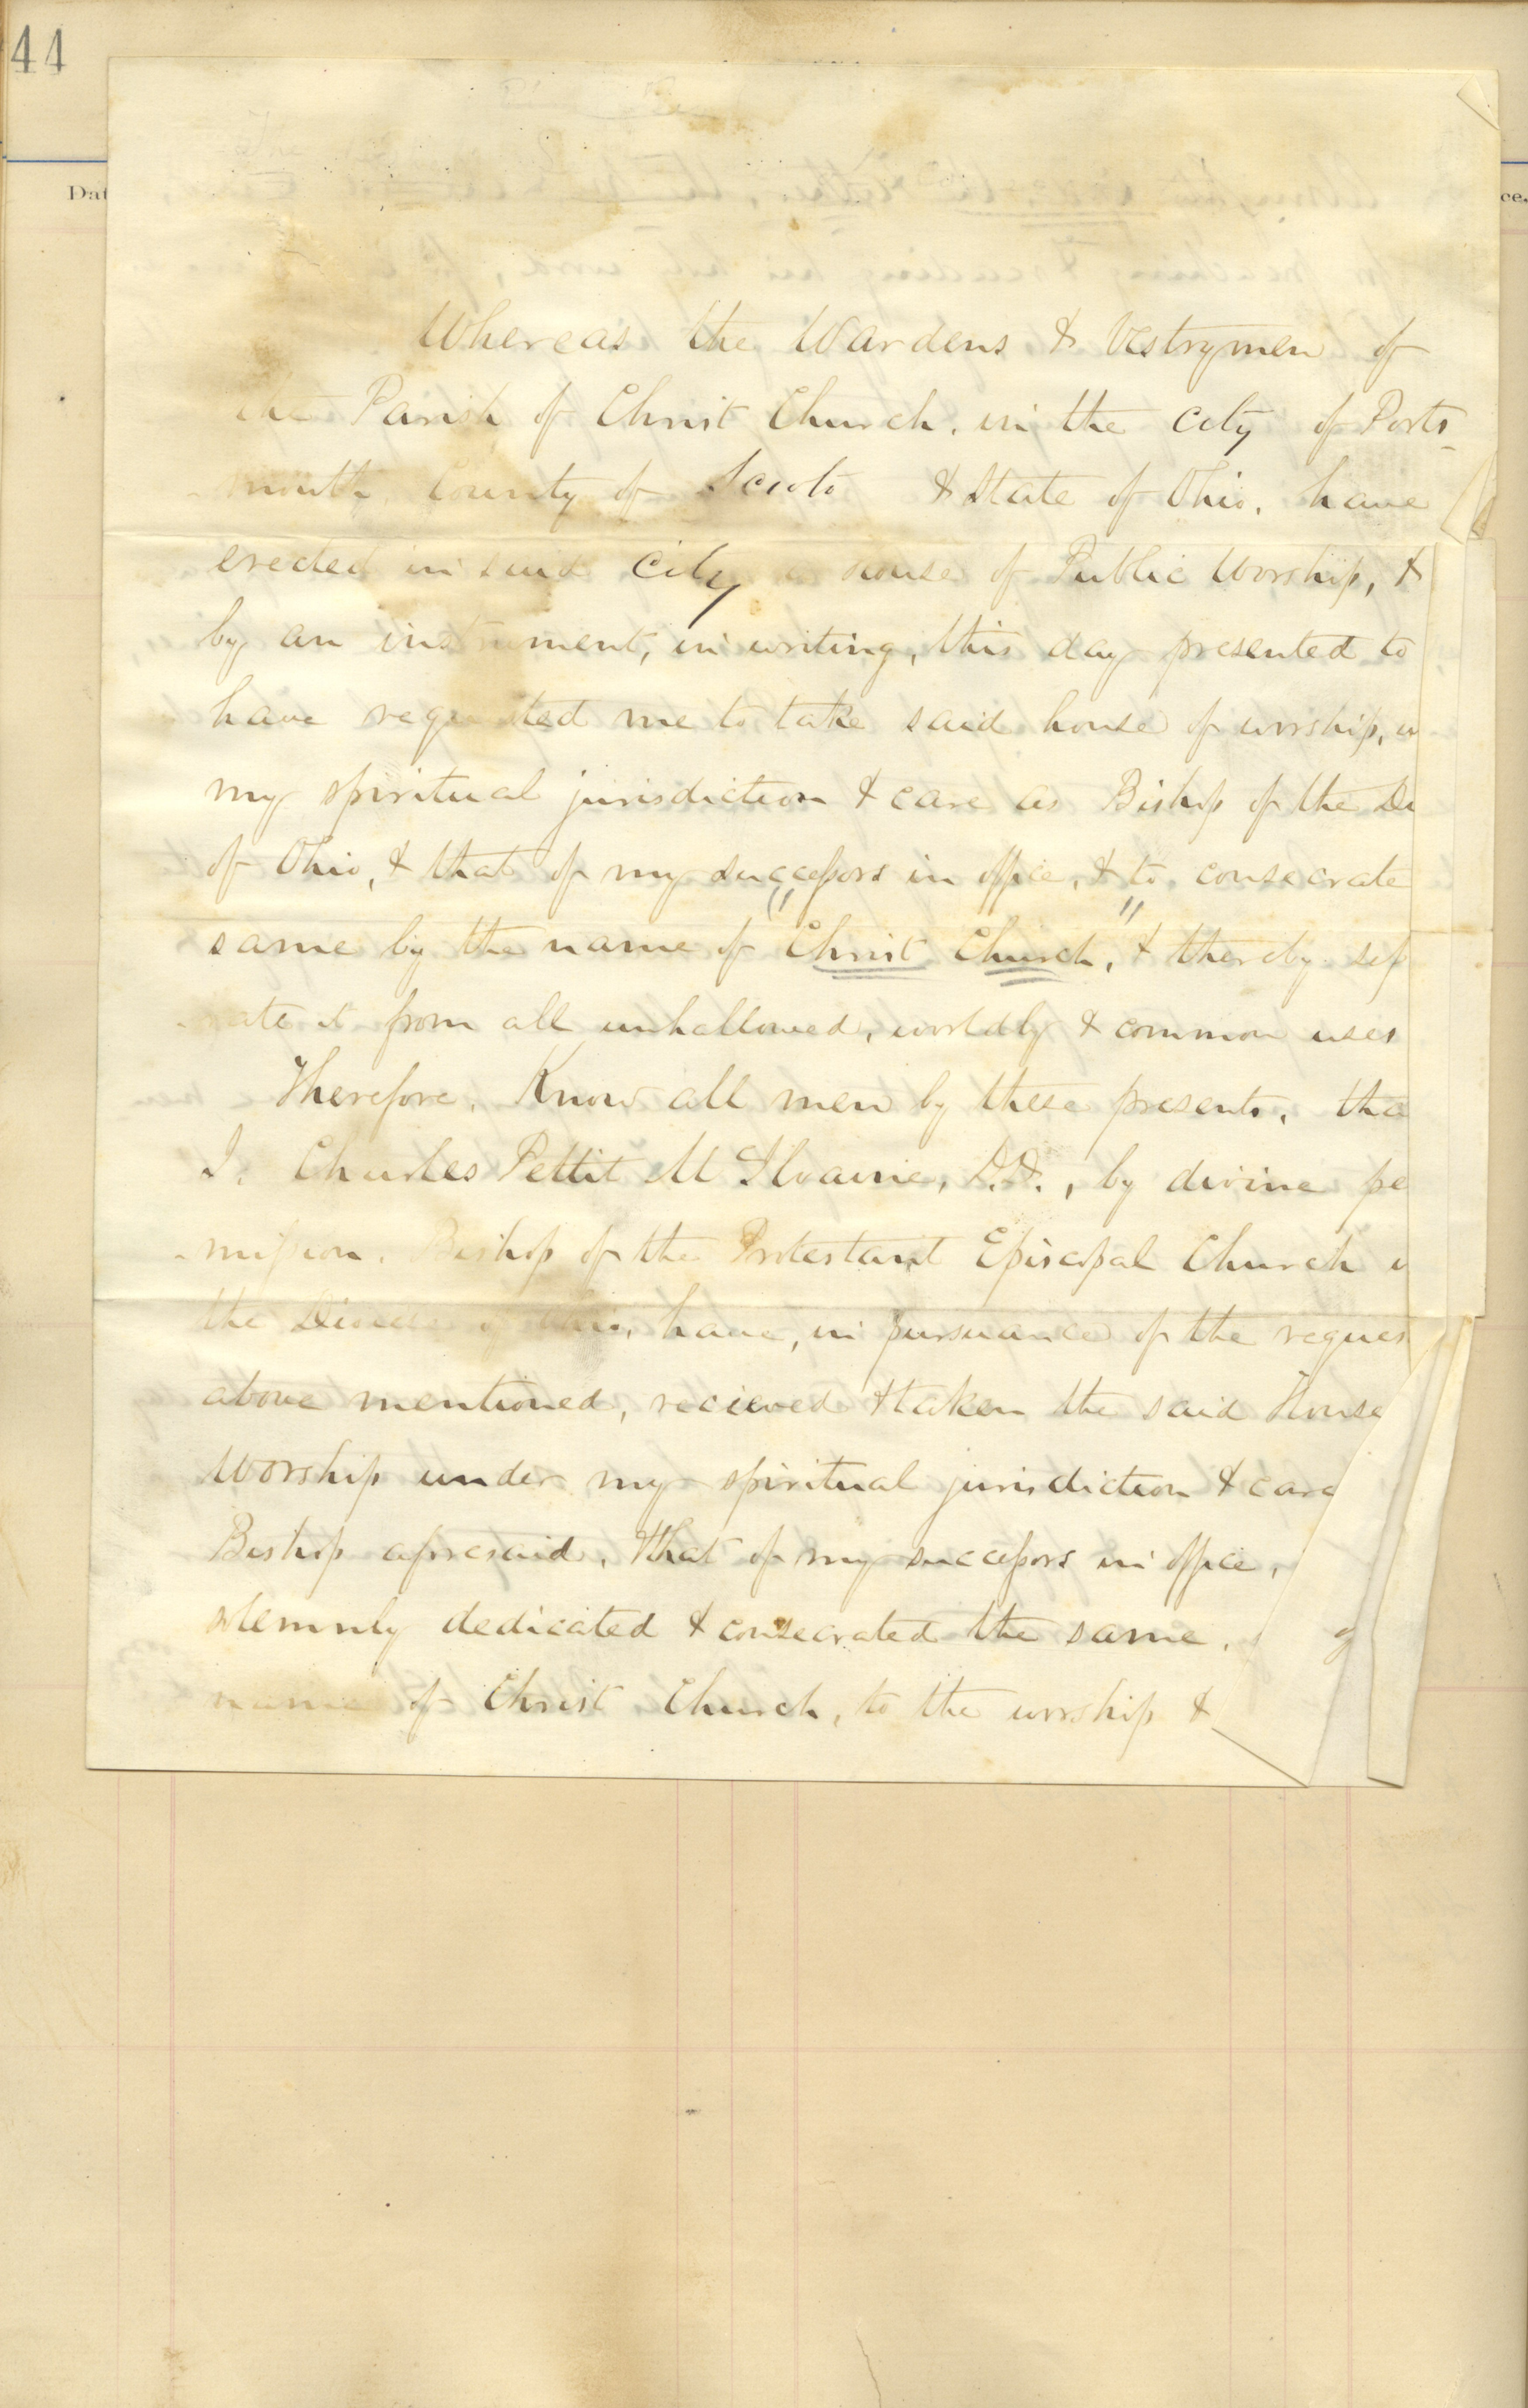 44
Dat
ce.
Whereas the Wardens & Vestrymen of
the Parish of Christ Church, in the City of Ports
-mouth, County of Scioto & State of Ohio, have
erected in said City a house of Public Worship, &
by an instrument, in writing, this day presented to
have requested me to take said house of worship, u
my spiritual jurisdiction & care as Bishop of the Di
of Ohio, & that of my successors in office, & to consecrate
same by the name of "Christ Church," & thereby sep
-rate it from all unhallowed, worldly & common uses
Therefore, Know all men by these presents, tha
I, Charles Pettit McIlvaine, D.D., by divine pe
-mission, Bishop of the Protestant Episcopal Church i
the Diocese of Ohio, have, in pursuance of the reques
above mentioned, recieved & taken the said House
Worship under my spiritual jurisdiction & care
Bishop aforesaid, that of my successors in office,
solemnly dedicated & consecrated the same,
name of Christ Church, to the worship &